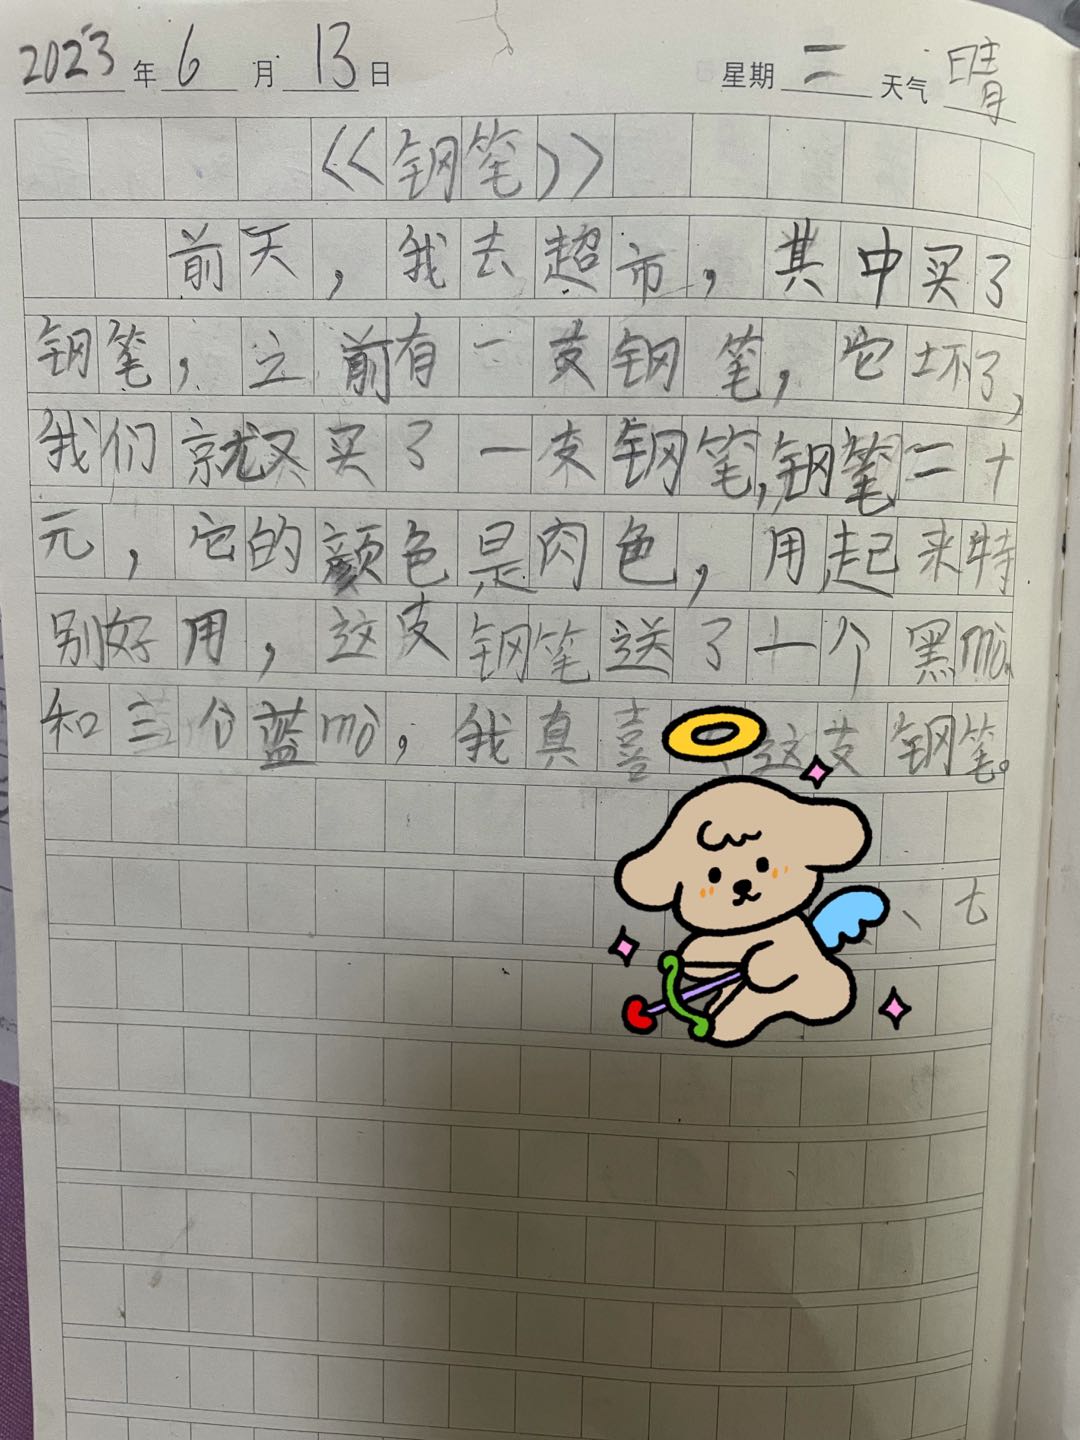 2023年6月13日 星期二 天气 晴
《钢笔》
前天，我去超市，其中买了
钢笔，之前有一支钢笔，它坏了，
我们就又买了一支钢笔，钢笔二十
元，它的颜色是肉色，用起来特
别好用，这支钢笔送了一个黑mò
和三个蓝mò，我真喜这支钢笔。
、七